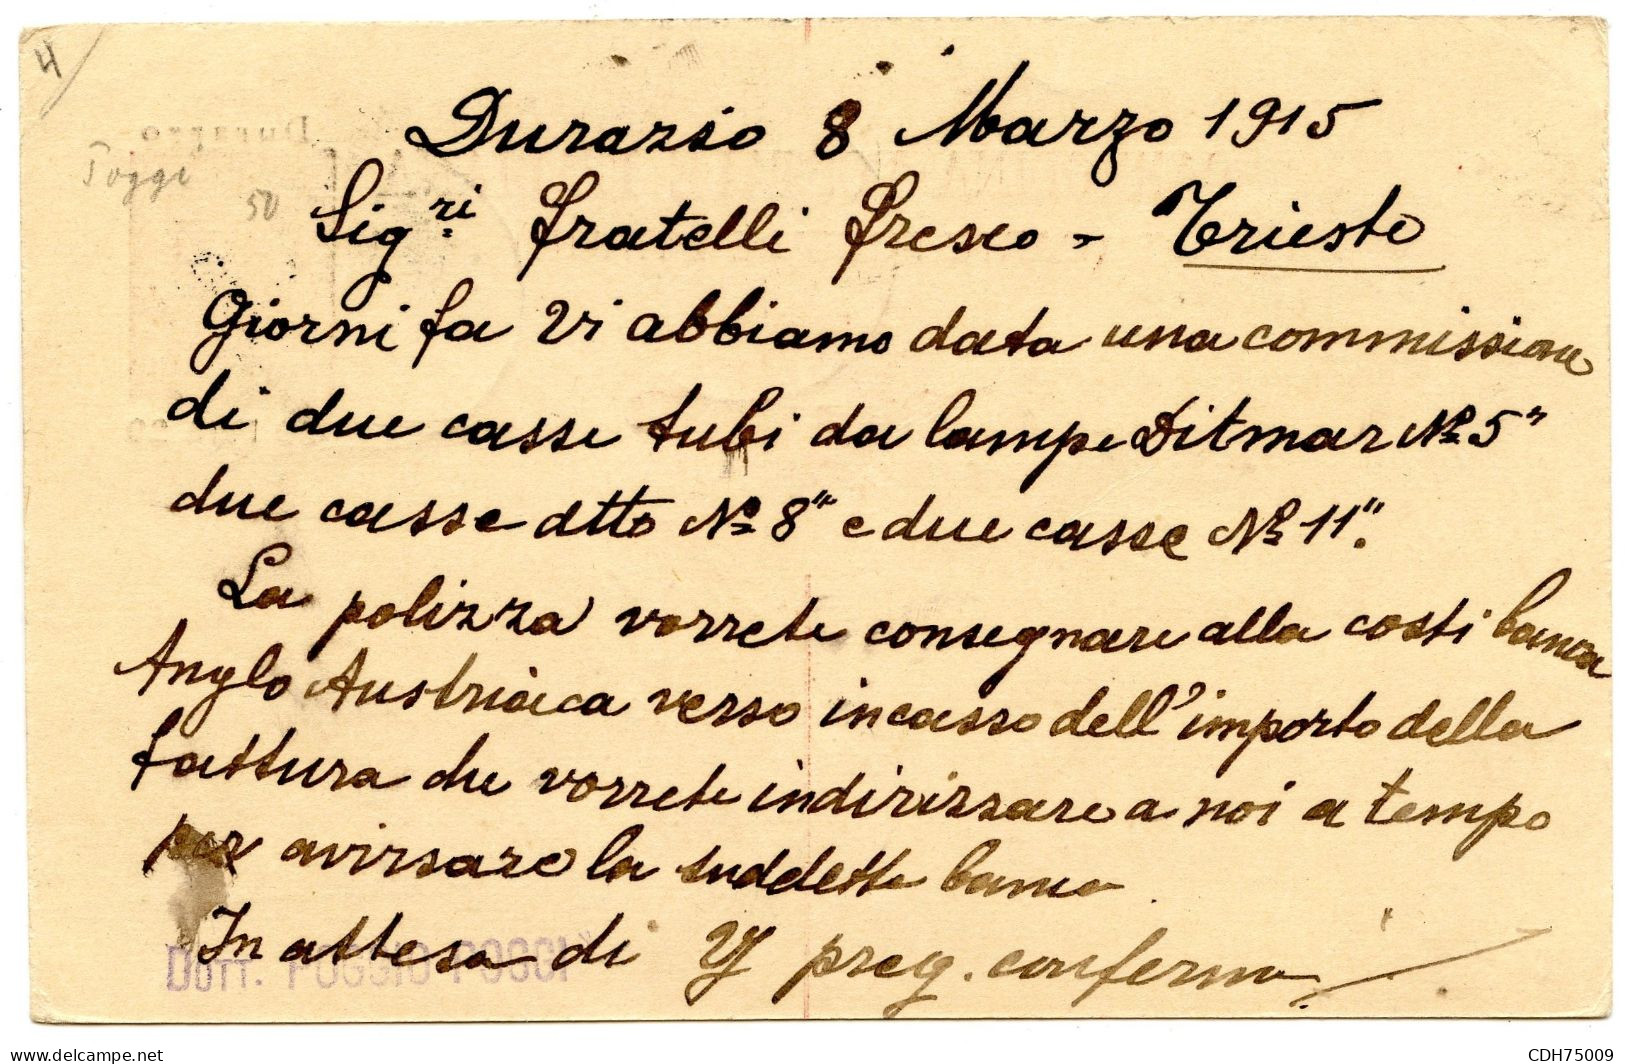 4
Durazzo 8 Marzo 1915
Poggi
50
Sigri Fratelli Fresco - Trieste
Giorni fa Vi abbiamo data una commissione
di due casse tubi da lampe Ditmar No 5"
due casse dtto No 8" e due casse No 11".
La polizza vorrete consegnare alla costi banca
Anglo Austriaca verso incasso dell'importo della
fattura che vorrete indirizzare a noi a tempo
per avirsare la suddetta banca.
In attesa di Vs preg. conferma
DOTT. POGGIO POGGI
delcampe.net
CDH75009